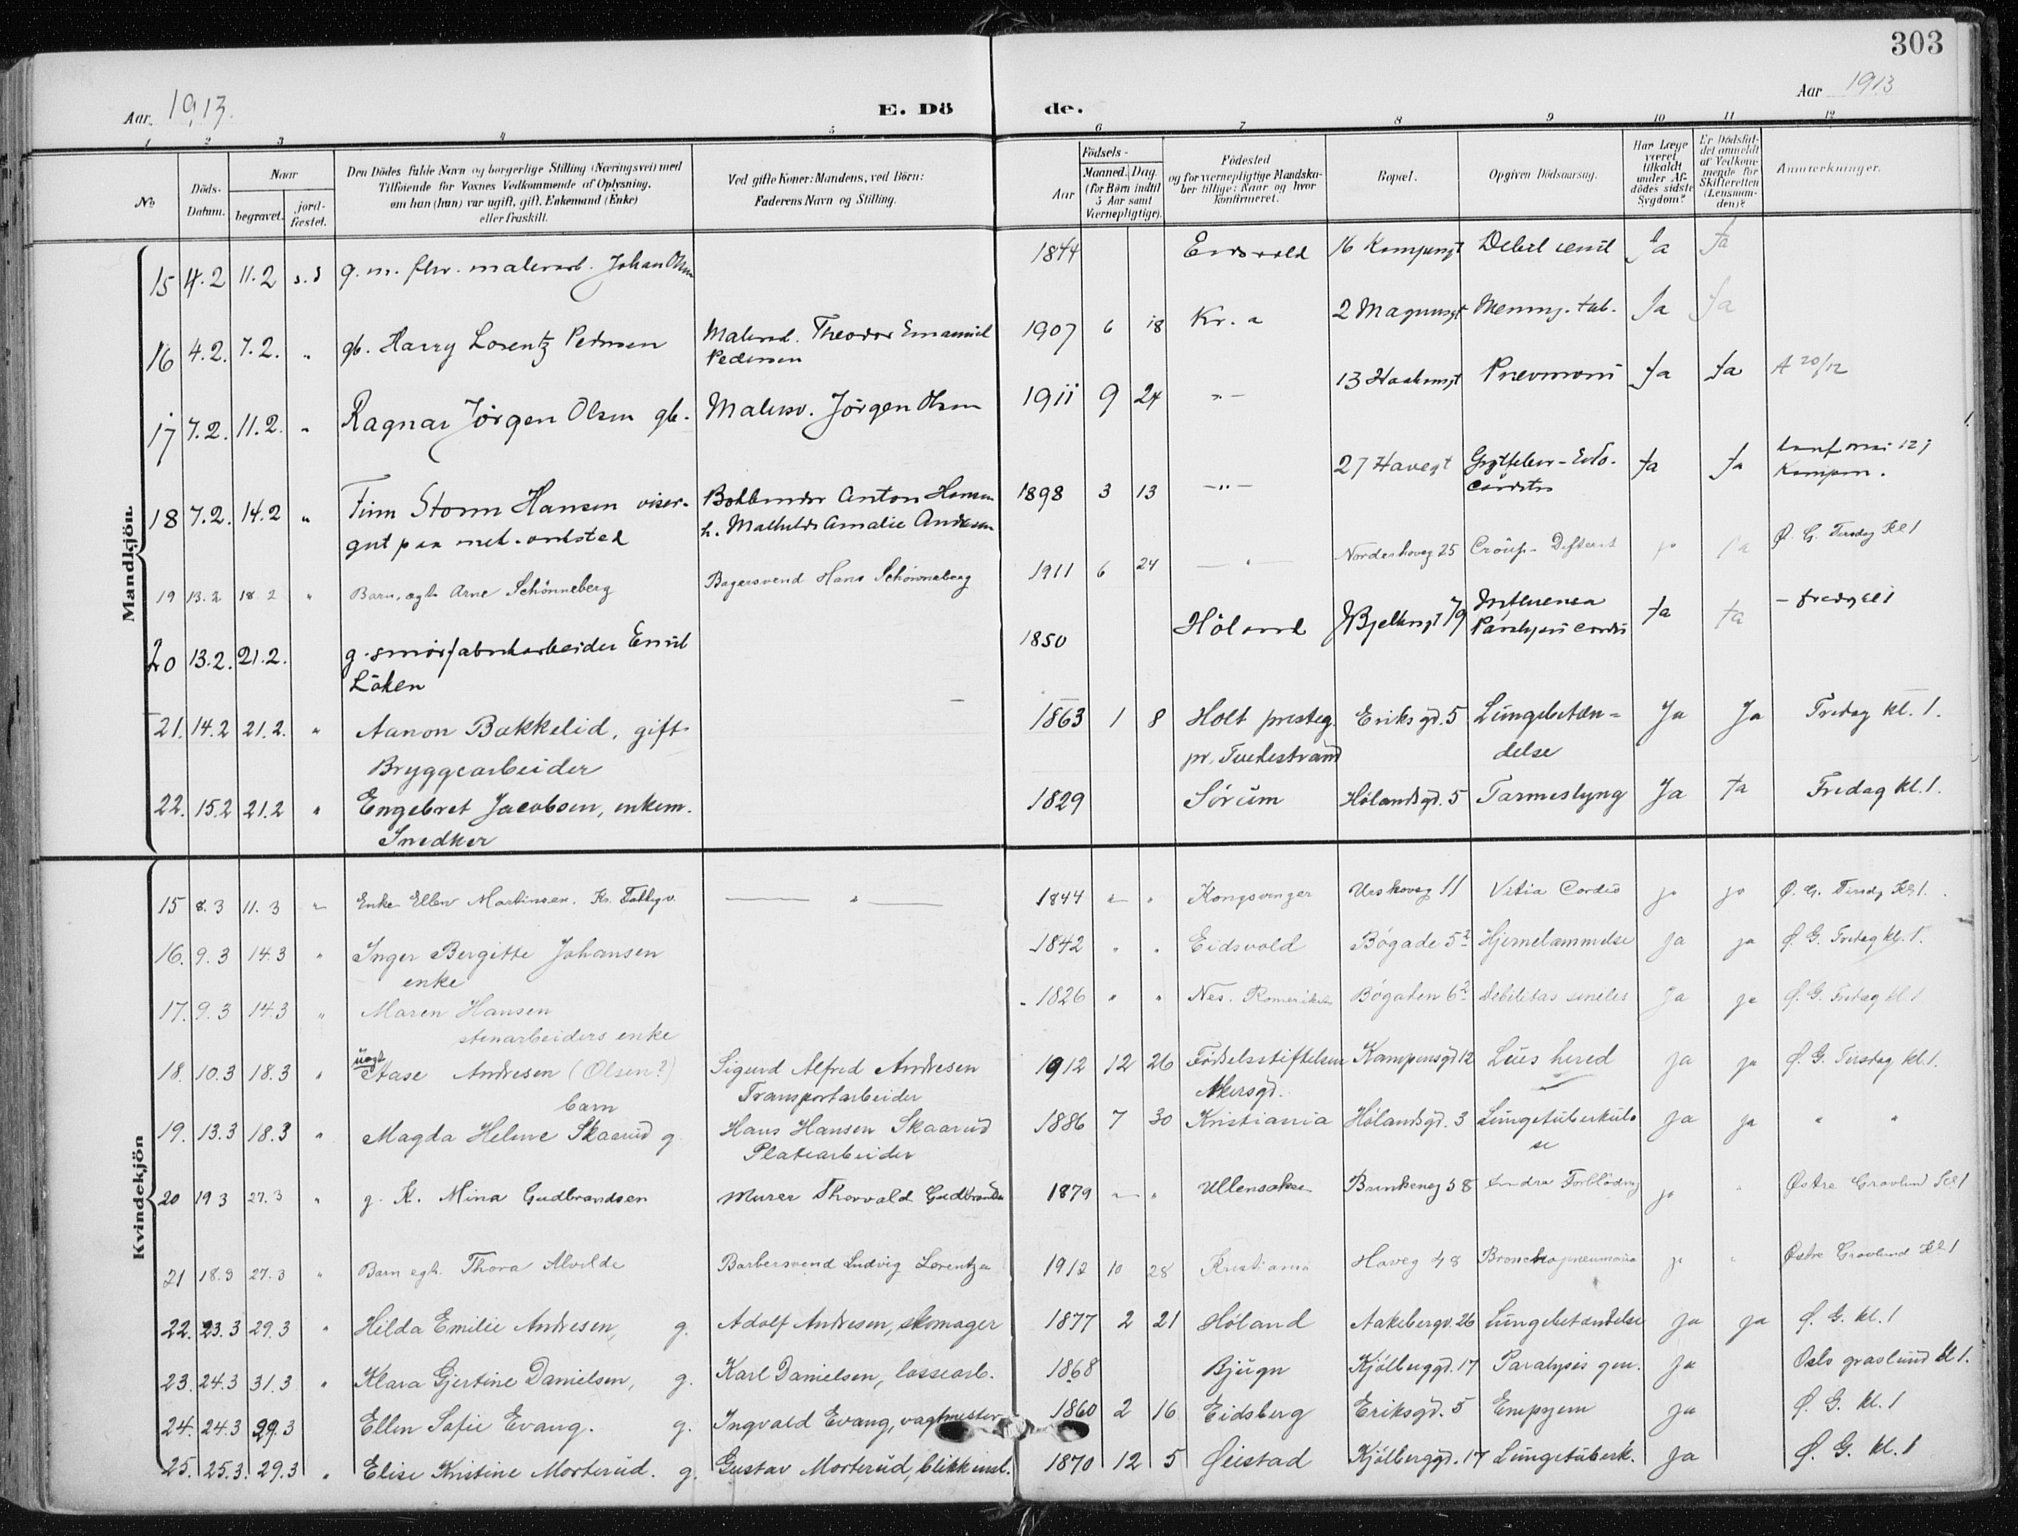 303
Aar 1913.
E. Dö de.
Aar 1913
1 2 3 4 5 6 7 8 9 10 11 12
No
Döds-Datum.
Naar
begravet.
jord-fæstet.
Den Dödes fulde Navn og borgerlige Stilling (Næringsvei) med
Tilföiende for Voxnes Vedkommende af Oplysning,
om han (hun) var ugift, gift, Enkemand (Enke)
eller fraskilt.
Ved gifte Koner: Mandens, ved Börn:
Faderens Navn og Stilling.
Födsels-
Aar
Maaned. Dag.
(for Börn indtil
5 Aar samt
Værnepligtige).
Födested
og for værnepligtige Mandska-
ber tillige: Naar og hvor
konfirmeret.
Bopæl.
Opgiven Dödsaarsag.
Har Læge
været
tilkaldt
under Af-
dödes sidste
Sygdom?
Er Dödsfal-
det anmeldt
af Vedkom-
mende for
Skifteretten
(Lensman-
den)?
Anmærkninger.
Mandkjön.
15 4.2 11.2 s.d g. m. fhv. malerarb. Johan Olsen 1844 Eidsvold 16 Kampengt Debil senil Ja Ja
16 4.2. 7.2. " gb. Harry Lorentz Pedersen Malersv. Theodor Emanuel 1907 6 18 Kr. a 2 Magnusgt Mening. tub. Ja Ja
Pedersen
17 7.2. 11.2. " Ragnar Jörgen Olsen gb. Malersv. Jörgen Olsen 1911 9 24 - " - 13 Haakonsgt Pneumoni Ja Ja A 20/12
18 7.2. 14.2 " Finn Storm Hansen viser- Bokbinder Anton Hansen 1898 3 13 - " - 27 Havegt Ja Ja
gut paa met. Mathilde Amalie Andersen
19 13.2 18.2 " Barn, ægte Arne Schönneberg Bagersvend Hans Schönneberg 1911 6 24 - " - Norderhovg 25 Croup - Difterit ja ja Ø. G. Tirsdag Kl 1
20 13.2. 21.2. g. smörfabrikarbeider Emil 1850 Höland Bjelkesgt 79 Influensa Ja Ja - Fredag kl 1
Löken Paralysis cordis
21. 14.2 21.2. " Aanon Bakkelid, gift 1863 1 8 Holt presteg. Eriksgd. 5 Lungebetæn- Ja Ja Fredag kl. 1.
Bryggearbeider pr. Tvedestrand delse
22. 15.2 21.2 " Engebret Jacobsen, enkem. 1829 Sörum Hölandsgd. 5 Tarmeslyng Ja Ja Fredag kl. 1.
Snedker
Kvindekjön
15 8.3 11.3 " Enke Ellen Martinsen. Kr. Fattigv. " 1844 " " Kongsvinger Urskovsg 11 Vitia Cordis ja ja Ø. G. Tirsdg Kl 1.
16. 9.3 14.3 " Inger Bergitte Johansen 1842 " " Eidsvold Bögade 5 2 Hjernelammelse ja ja Ø. G. Fredag kl. 1.
enke
17. 9.3 14.3 " Maren Hansen 1826 " " Nes. Romerike Bögaten 6 2 Debilitas seniles Ja ja Ø. G. Fredag kl 1
stenarbeiders enke
18. 10.3 18.3 " uegt Aase Andresen (Olsen?) Sigurd Alfred Andresen 1912 12 26 Födselsstiftelsen Kampensgd 12 Lues hered ja ja Ø. G. Tirsdag kl 1.
barn Transportarbeider Akersgd.
19. 13.3 18.3 " Magda Helene Skaarud g. Hans Hansen Skaarud 1886 7 30 Kristiania Hölandsgd. 3 Lungetuberkulo ja ja " "
Platearbeider se
20 19.3 27.3 " g. K. Mina Gudbrandsen Murer Thorvald Gudbrandsen 1879 " " Ullensaker Brinkeneg 58 Indre Forblödning ja " Østre Gravlund Kl 1
21 18.3 27.3 " Barn egte Thora Alvilde Barbersvend Ludvig Lorentzen 1912 10 28 Kristiania Haveg 48 Bronchopneumonia ja " Østre Gravlund Kl 1
22. 23.3 29.3 " Hilda Emilie Andresen, g. Adolf Andresen, skomager 1877 2 21 Höland Aakebergv. 26 Lungebetændelse ja ja Ø. G. kl. 1
23. 24.3 31.3 " Klara Gjertine Danielsen, g. Karl Danielsen, lossearb. 1868 Bjugn Kjölberggd. 17 Paralysis gen. ja Oslo gravlund kl 1.
24. 24.3 29.3 Ellen Sofie Evang. g. Ingvald Evang, vagtmester 1860 2 16 Eidsberg Eriksgd. 5 Empyem ja Ø. G. kl. 1
25. 25.3. 29.3 " Elise Kristine Morterud. g. Gustav Morterud, blikkensl. 1870 12 5 Øeistad Kjölberggd. 17 Lungetuberk. ja Ø. G. kl. 1